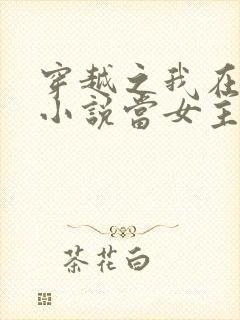 穿越之我在
小說當女主
茶花白